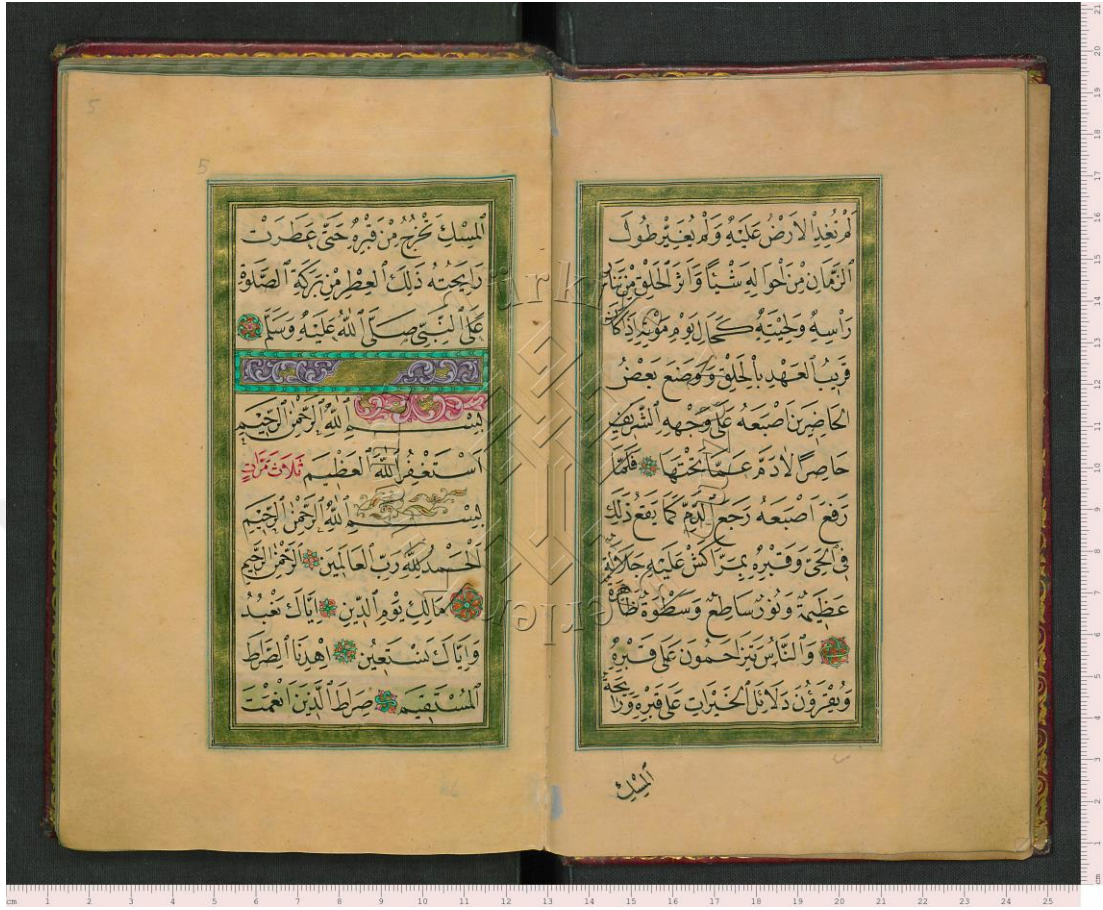 لَمْ تُعْدِ الْاَرْضُ عَلَيْهِ وَلَمْ يُغَيِّرْ طُولُ
الزَّمَانِ مِنْ اَحْوَالِهِ شَيْئًا وَاَثَرُ الْحَلْقِ مِنْ
رَاْسِهِ وَلِحْيَتِهِ كَحَالِ يَوْمِ مَوْتِهِ اِذْ كَانَ
قَرِيبَ الْعَهْدِ بِالْحَلْقِ وَوَضَعَ بَعْضُ
الْحَاضِرِينَ اَصْبَعَهُ عَلَى وَجْهِهِ الشَّرِيفِ
حَاصِرًا لِادَمِ عَمَّا تَحْتَهَا فَلَمَّا
رَفَعَ اَصْبَعَهُ رَجَعَ الدَّمُ كَمَا يَقَعُ ذَلِكَ
فِي الْحَيِّ وَقَبْرُهُ بِمَرَّاكُشَ عَلَيْهِ جَلَالَةٌ
عَظِيمَةٌ وَنُورٌ سَاطِعٌ وَسَطْوَةٌ ظَاهِرَةٌ
وَالنَّاسُ يَتَزَاحَمُونَ عَلَى قَبْرِهِ
وَيُقْرَؤُنَ دَلَائِلَ الْخَيْرَاتِ عَلَى قَبْرِهِ وَرَايِحَةُ
الْمِسْكِ
5
5
الْمِسْكِ تَخْرُجُ مِنْ قَبْرِهِ حَتَّى عَطَرَتْ
رَايِحَتُهُ ذَلِكَ الْعِطْرِ مِنْ بَرَكَةِ الصَّلَوةِ
عَلَى النَّبِيِّ صَلَّى اللّٰهُ عَلَيْهِ وَسَلَّمَ
بِسْمِ اللّٰهِ الرَّحْمٰنِ الرَّحِيمِ
اَسْتَغْفِرُ اللّٰهَ الْعَظِيمَ ثَلَاثَ مَرَّاتٍ
بِسْمِ اللّٰهِ الرَّحْمٰنِ الرَّحِيمِ
اَلْحَمْدُ لِلّٰهِ رَبِّ الْعَالَمِينَ الرَّحْمٰنِ الرَّحِيمِ
مَالِكِ يَوْمِ الدِّينِ اِيَّاكَ نَعْبُدُ
وَاِيَّاكَ نَسْتَعِينُ اِهْدِنَا الصِّرَاطَ
الْمُسْتَقِيمَ صِرَاطَ الَّذِينَ اَنْعَمْتَ